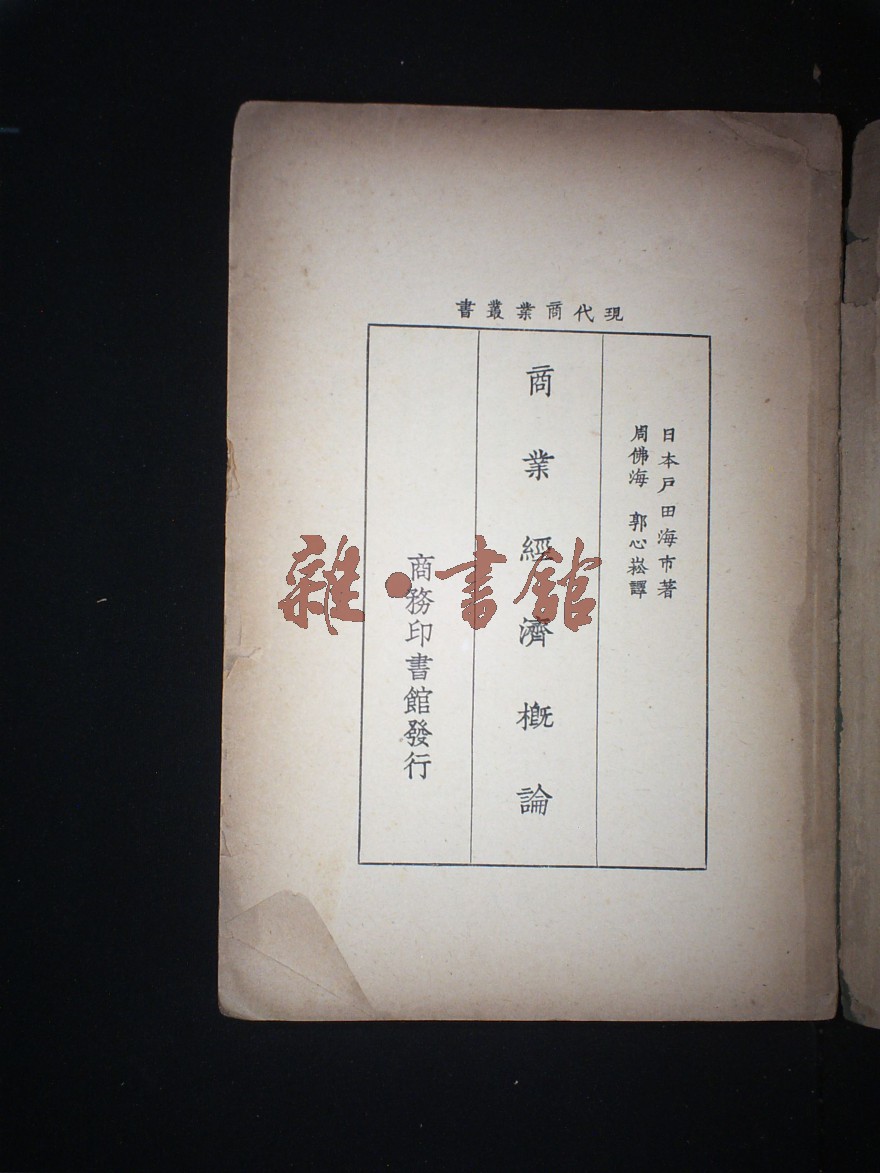 現代商業叢書
日本戸田海市著
周佛海 郭心崧譯
商業經濟概論
商務印書館發行
雜·書館